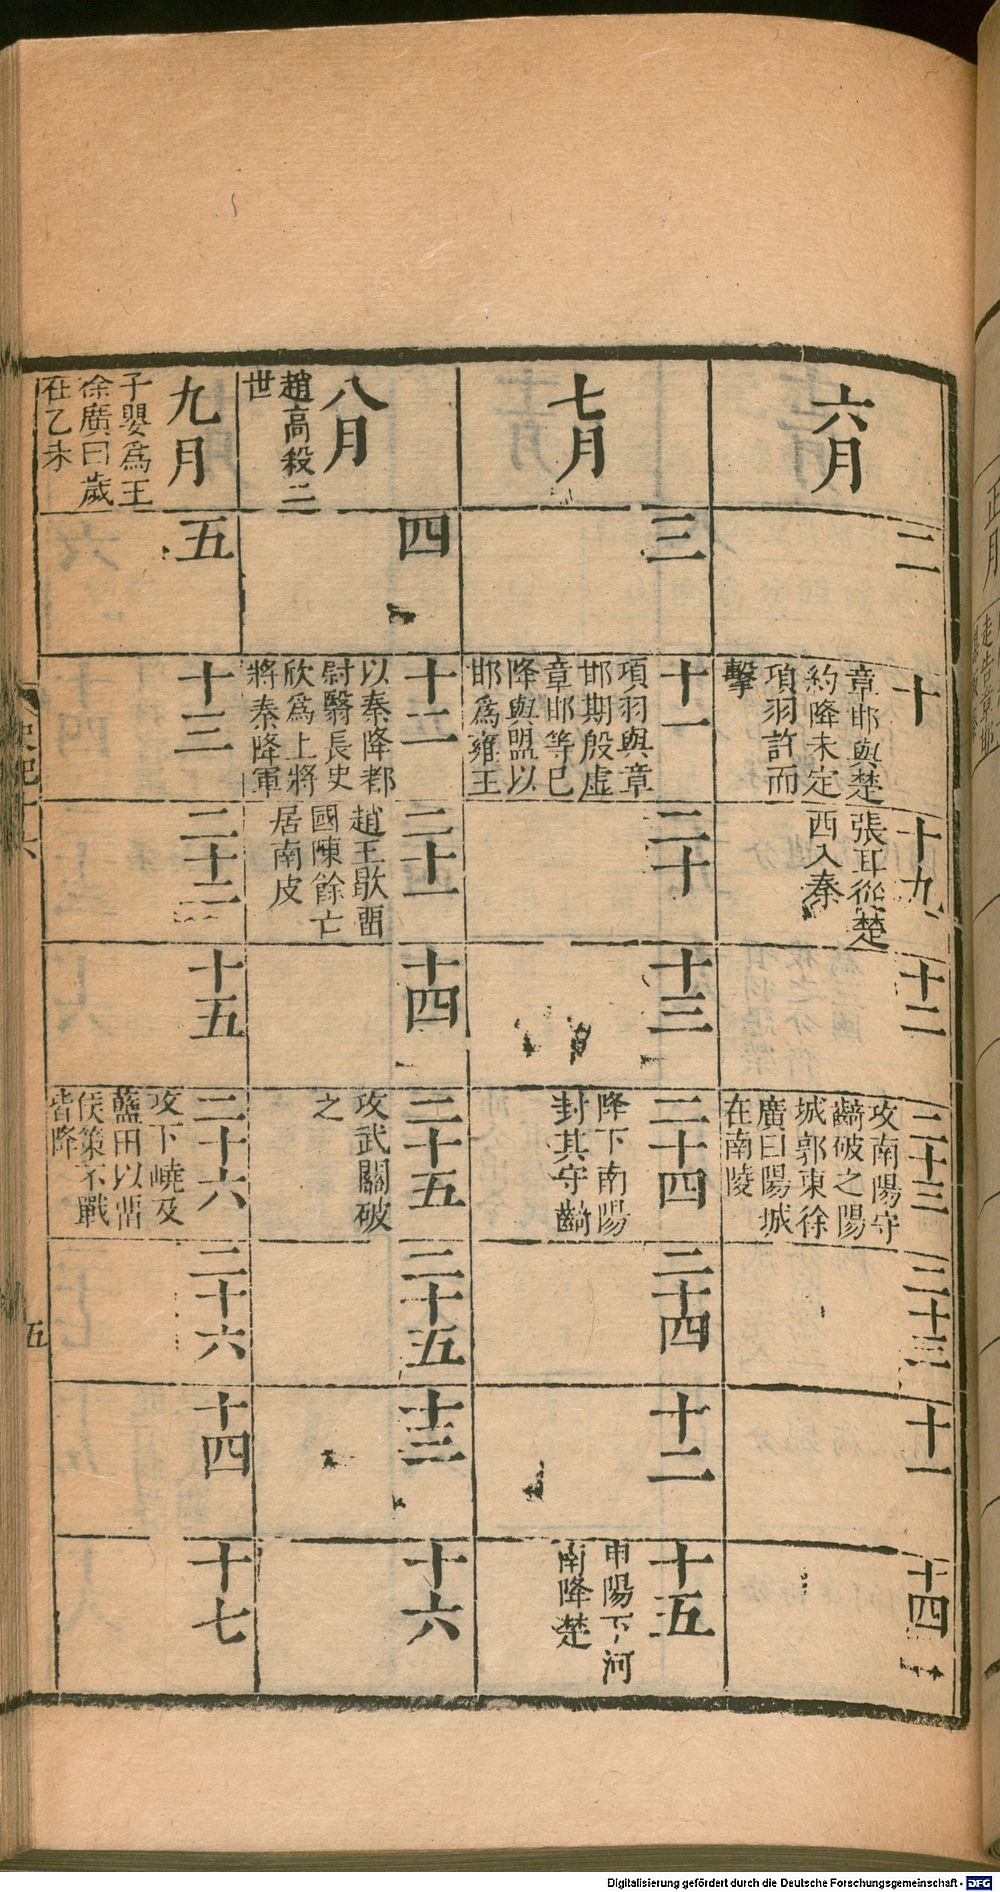 六月
二
十
章邯與楚
約降未定
項羽許而
擊
十九
張耳從楚
西入秦
十二
二十三
攻南陽守
齮破之陽
城郭東徐
廣曰陽城
在南陵
二十三
十一
十四
七月
三
十一
項羽與章
邯期殷虛
章邯等已
降與盟以
邯爲雍王
二十
十三
二十四
降下南陽
封其守齮
二十四
十二
十五
申陽下河
南降楚
八月
趙高殺二
世
四
十二
以秦降都
尉翳長史
欣爲上將
將秦降軍
二十一
趙王歇畱
國陳餘亡
居南皮
十四
二十五
攻武關破
之
二十五
十三
十六
九月
子嬰爲王
徐廣曰歲
在乙未
五
十三
二十二
十五
二十六
攻下嶢及
藍田以畱
侯策不戰
皆降
二十六
十四
十七
五
正月
Digitalisierung gefördert durch die Deutsche Forschungsgemeinschaft - DFG